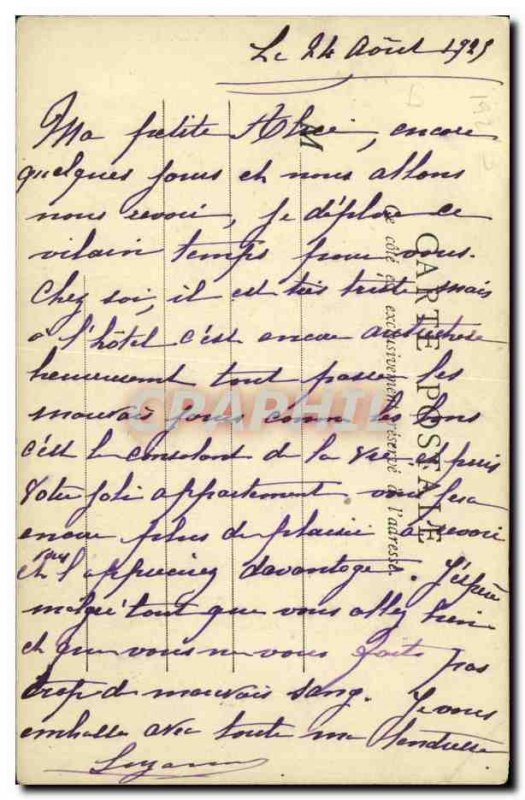 Le 24 Août 1925
Ma petite Alice, encore
quelques jours et nous allons
nous revoir, je déplore ce
vilain temps pour vous.
Chez soi, il est très triste mais
a l'hôtel c'est encore autre chose
heureusement tout passe, les
mauvais jours comme les bons
c'est le consolant de la vie et puis
votre joli appartement, vous fera
encore plus de plaisir à revoir
et vous l'apprecierez davantage. J'espère
malgré tout que vous allez bien
et que vous ne vous faites pas
trop de mauvais sang. Je vous
embrasse avec toute ma tendresse
Suzanne
CARTE POSTALE
Ce côté est exclusivement réservé à l'adresse.
CPAPHIL